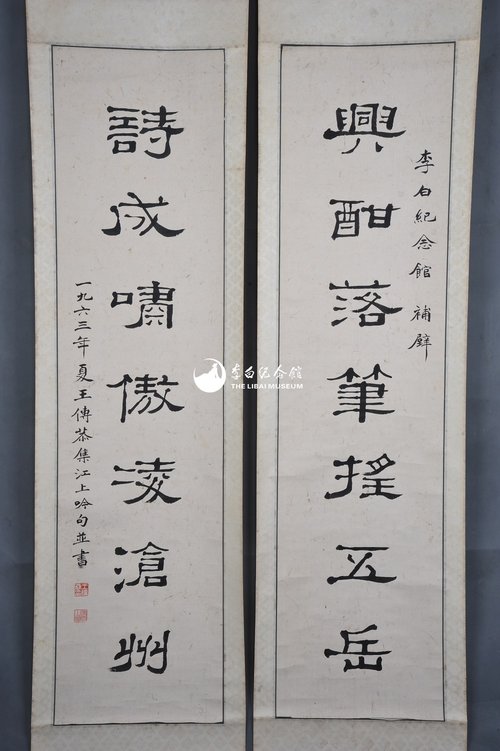 興酣落筆搖五岳
李白紀念館 補壁
詩成嘯傲凌滄州
一九六三年夏王傳恭集江上吟句並書
李白纪念館
THE LIBAI MUSEUM